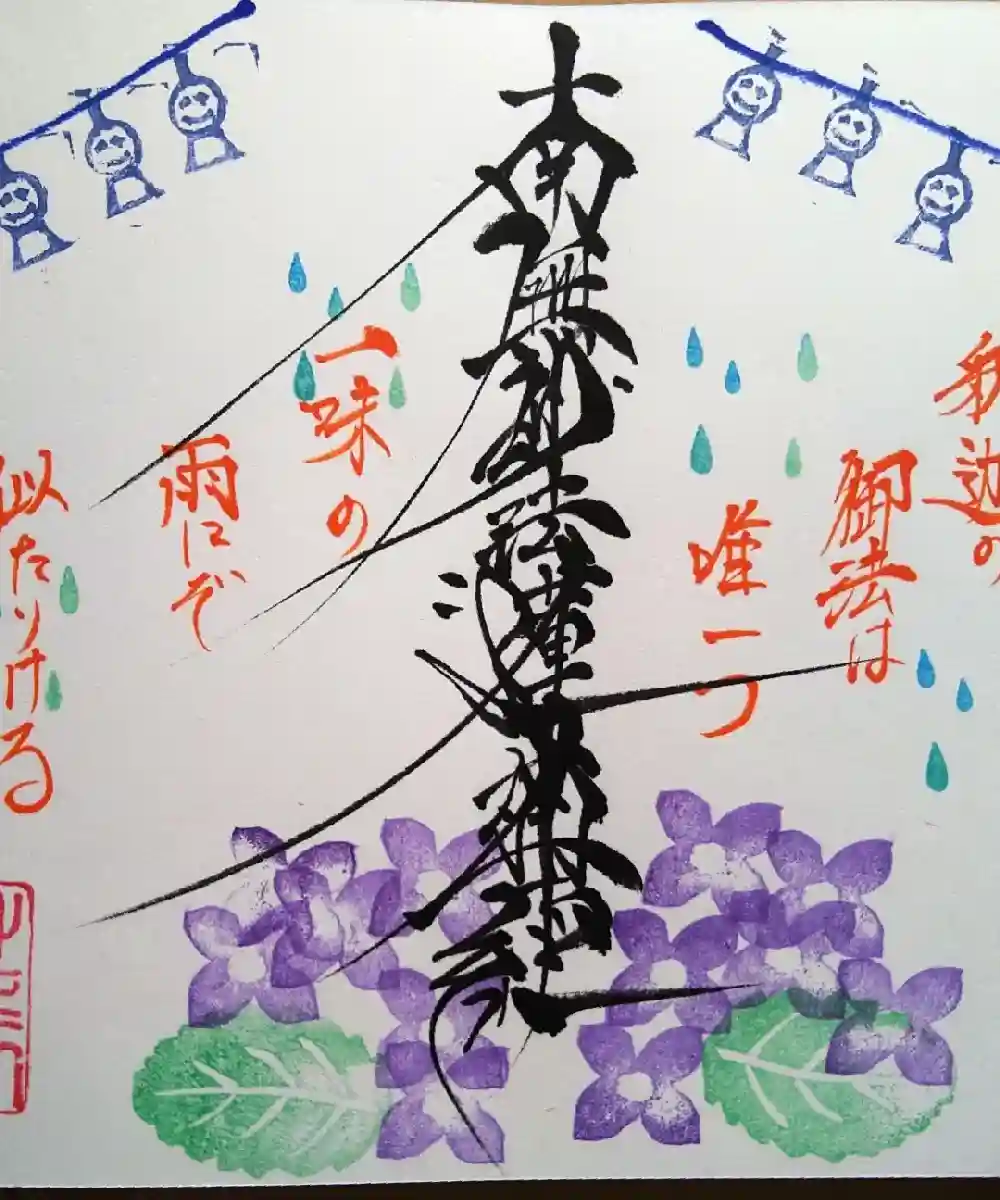 釈迦の
御法は
唯一つ
南無妙法蓮華経
一味の
雨にぞ
似たりける